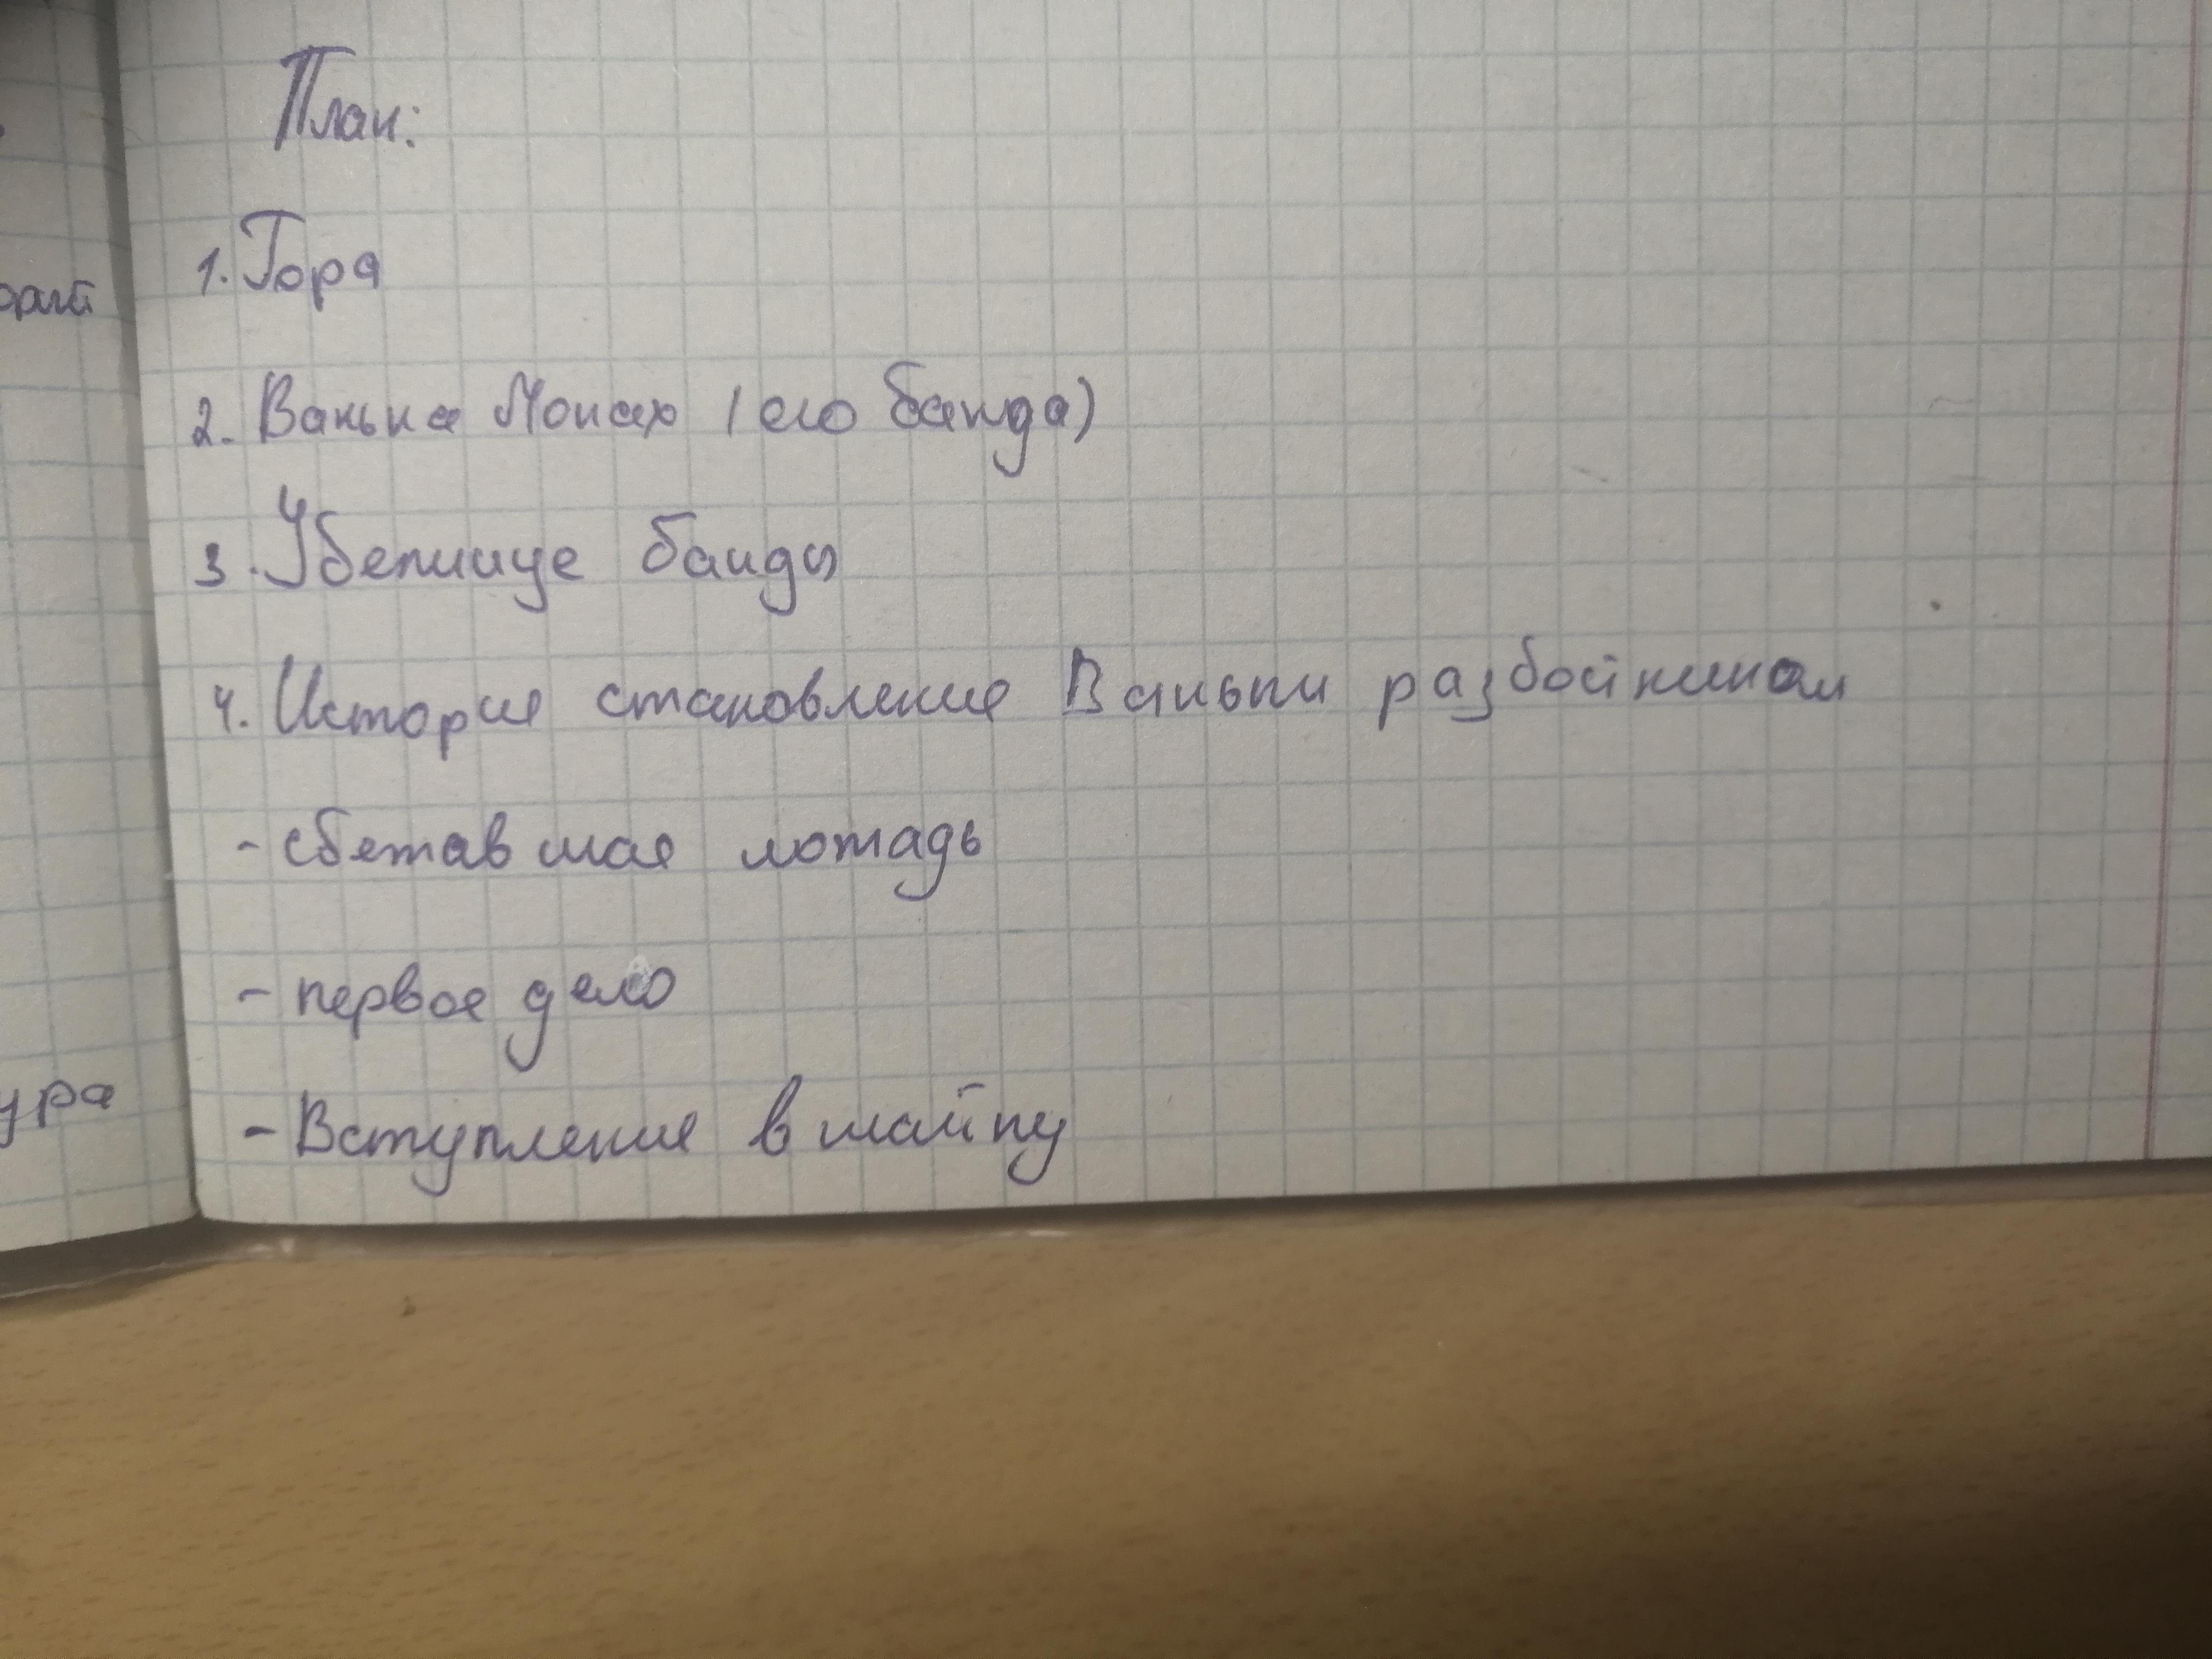 План:
1. Гора
2. Ванька Монах (его банда)
3. Убежище банды
4. История становление Ваньки разбойником
- сбежавшая лошадь
- первое дело
- Вступление в шайку
ура